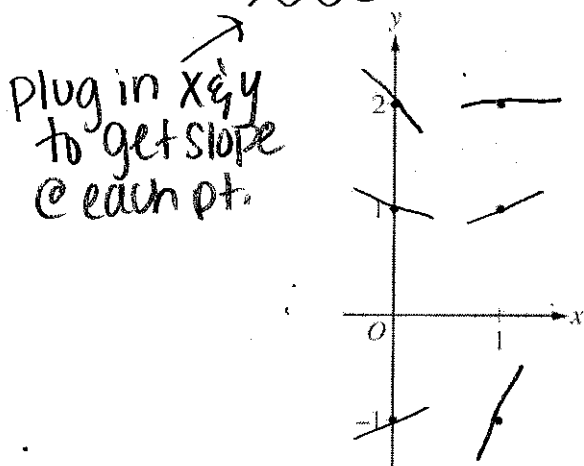 plug in x & y
to get slope
@ each pt.
y
2
1
O
1
x
-1